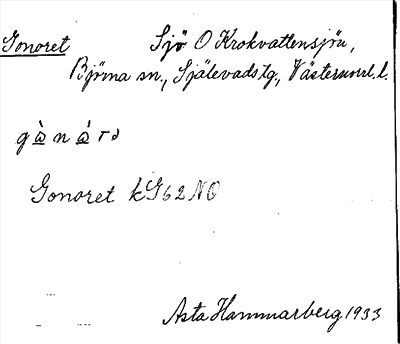 Gonoret Sjö O Krokvattensjön,
Björna sn., Själevads tg., Västernorrl. l.
gònórə
Gonoret kG62NO
Asta Hammarberg 1933